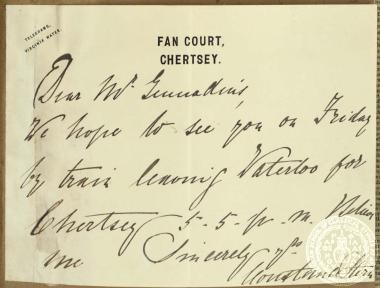 TELEGRAMS,
VIRGINIA WATER.
FAN COURT,
CHERTSEY.
Dear Mr Gennadius,
We hope to see you on Friday
by train leaving Waterloo for
Chertsey 5-5-p.m. Believe
me Sincerely yrs
Constance Stern